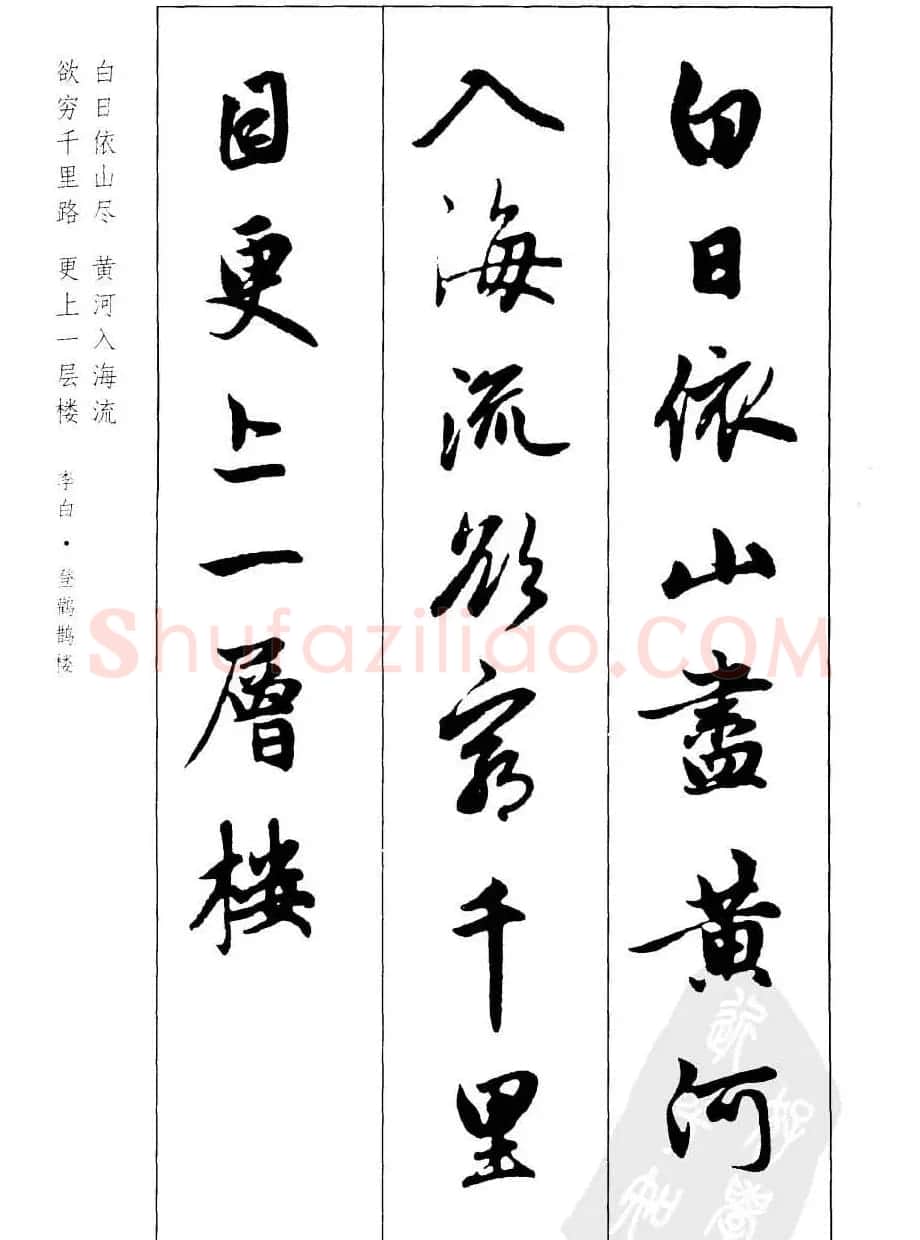 白日依山盡黄河
入海流欲窮千里
目更上一層樓
白日依山尽 黄河入海流
欲穷千里路 更上一层楼
李白·登鹳鹊楼
Shufaziliao.COM